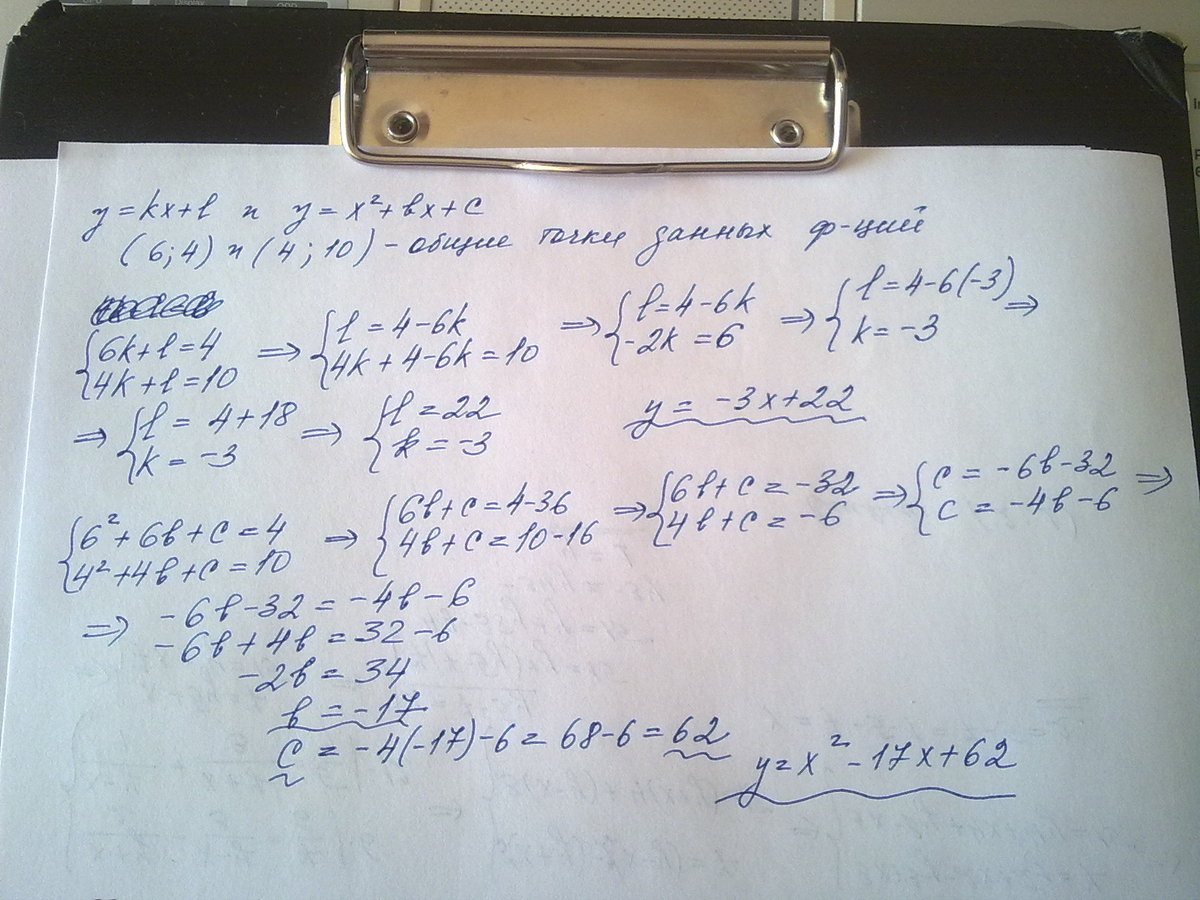 y = kx + l и y = x² + bx + c
(6; 4) и (4; 10) – общие точки данных ф-ций
{6k + l = 4 {4k + l = 10 ⇒ {l = 4 - 6k {4k + 4 - 6k = 10 ⇒ {l = 4 - 6k {-2k = 6 ⇒ {l = 4 - 6(-3) {k = -3 ⇒
⇒ {l = 4 + 18 {k = -3 ⇒ {l = 22 {k = -3 y = -3x + 22
{6² + 6b + c = 4 {4² + 4b + c = 10 ⇒ {6b + c = 4 - 36 {4b + c = 10 - 16 ⇒ {6b + c = -32 {4b + c = -6 ⇒ {c = -6b - 32 {c = -4b - 6 ⇒
⇒ -6b - 32 = -4b - 6
-6b + 4b = 32 - 6
-2b = 34
b = -17
c = -4(-17) - 6 = 68 - 6 = 62
y = x² - 17x + 62